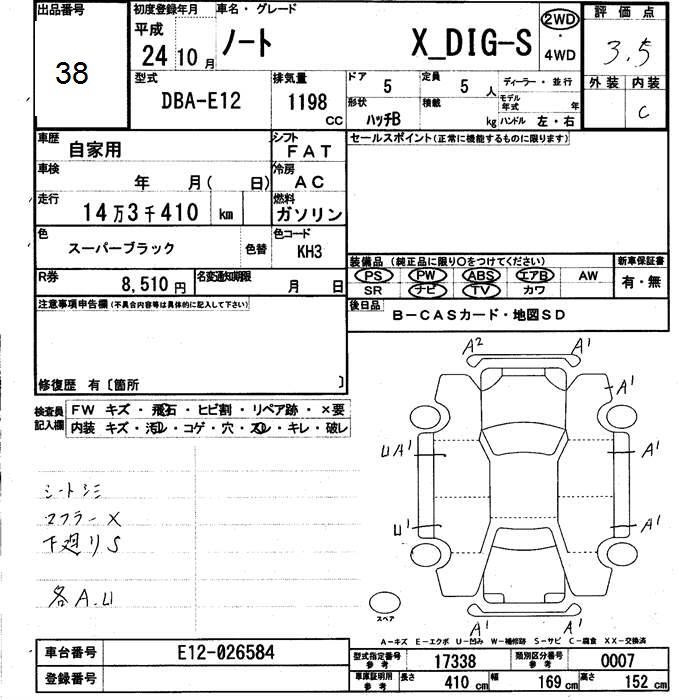 出品番号
38
初度登録年月
平成
24 10月
車名・グレード
ノート X_DIG-S
2WD
・
4WD
評価点
3.5
外装 内装
C
型式
DBA-E12
排気量
1198
CC
ドア
5
定員
5 人
ディーラー・並行
形状
ハッチB
積載
kg
モデル年式 年
ハンドル 左・右
車歴
自家用
シフト
FAT
車検
年 月( 日)
冷房
AC
走行
14万3千410 km
燃料
ガソリン
色
スーパーブラック
色替
色コード
KH3
R券
8,510円
名変通知期限
月 日
セールスポイント(正常に機能するものに限ります)
装備品(純正品に限り○をつけてください)
PS PW ABS エアB AW
SR ナビ TV カワ
新車保証書
有・無
後日品
B-CASカード・地図SD
注意事項申告欄(不具合内容等は具体的に記入して下さい)
修復歴 有〔箇所 〕
検査員記入欄
FW キズ・飛石・ヒビ割・リペア跡・×要
内装 キズ・汚レ・コゲ・穴・スレ・キレ・破レ
シートシミ
マフラーX
下廻りS
各A.U
A2 A1
A1
UA1 A1
U1 A1
A1 A1
スペア
A-キズ E-エクボ U-凹み W-補修跡 S-サビ C-腐食 XX-交換済
車台番号
E12-026584
登録番号
型式指定番号
参考
17338
類別区分番号
参考
0007
車庫証明用
参考
長さ 410cm
幅 169cm
高さ 152cm